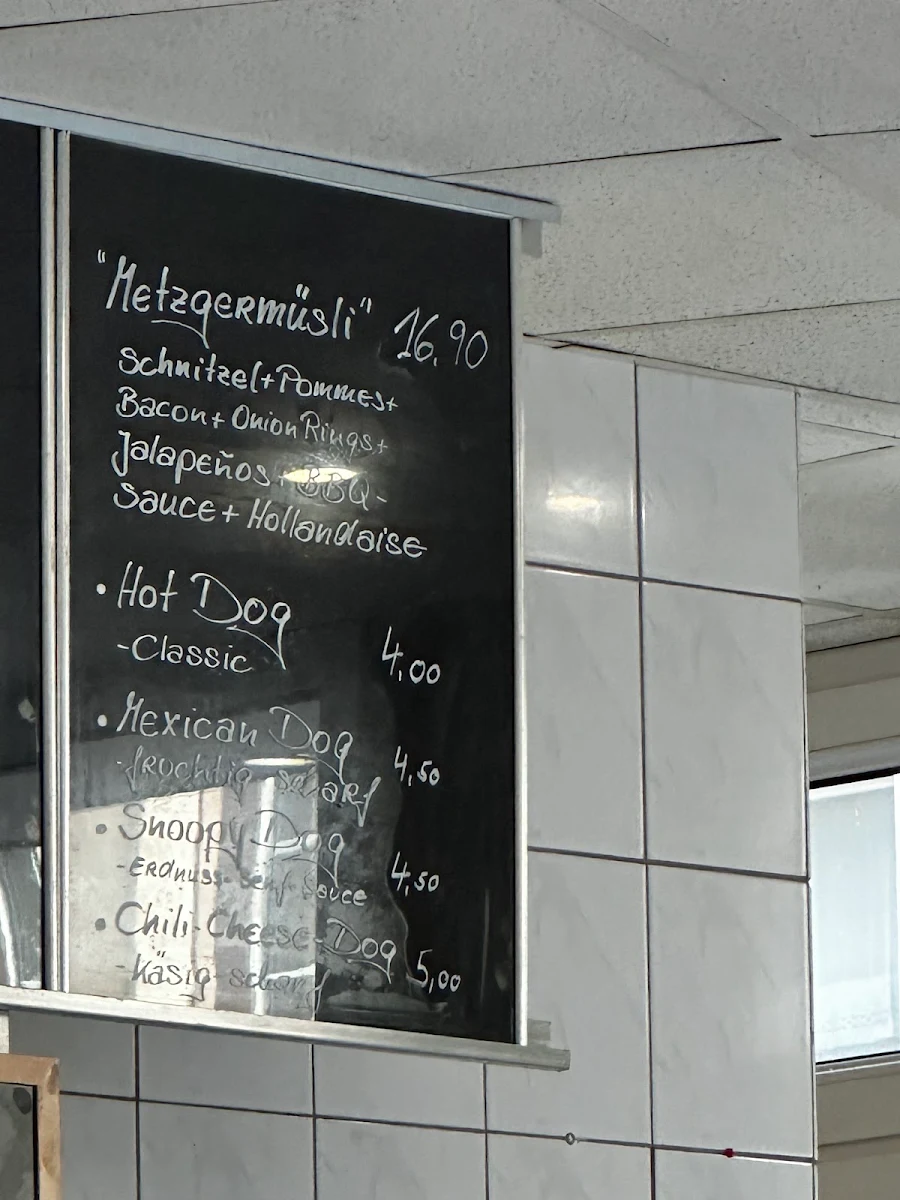 "Metzgermüsli" 16,90
Schnitzel+Pommes+
Bacon+Onion Rings+
Jalapeños+BBQ-
Sauce+Hollandaise
• Hot Dog
-Classic 4,00
• Mexican Dog
-fruchtig-scharf 4,50
• Snoopy Dog
-Erdnuss-Senf-Sauce 4,50
• Chili-Cheese-Dog
-Käsig-scharf 5,00